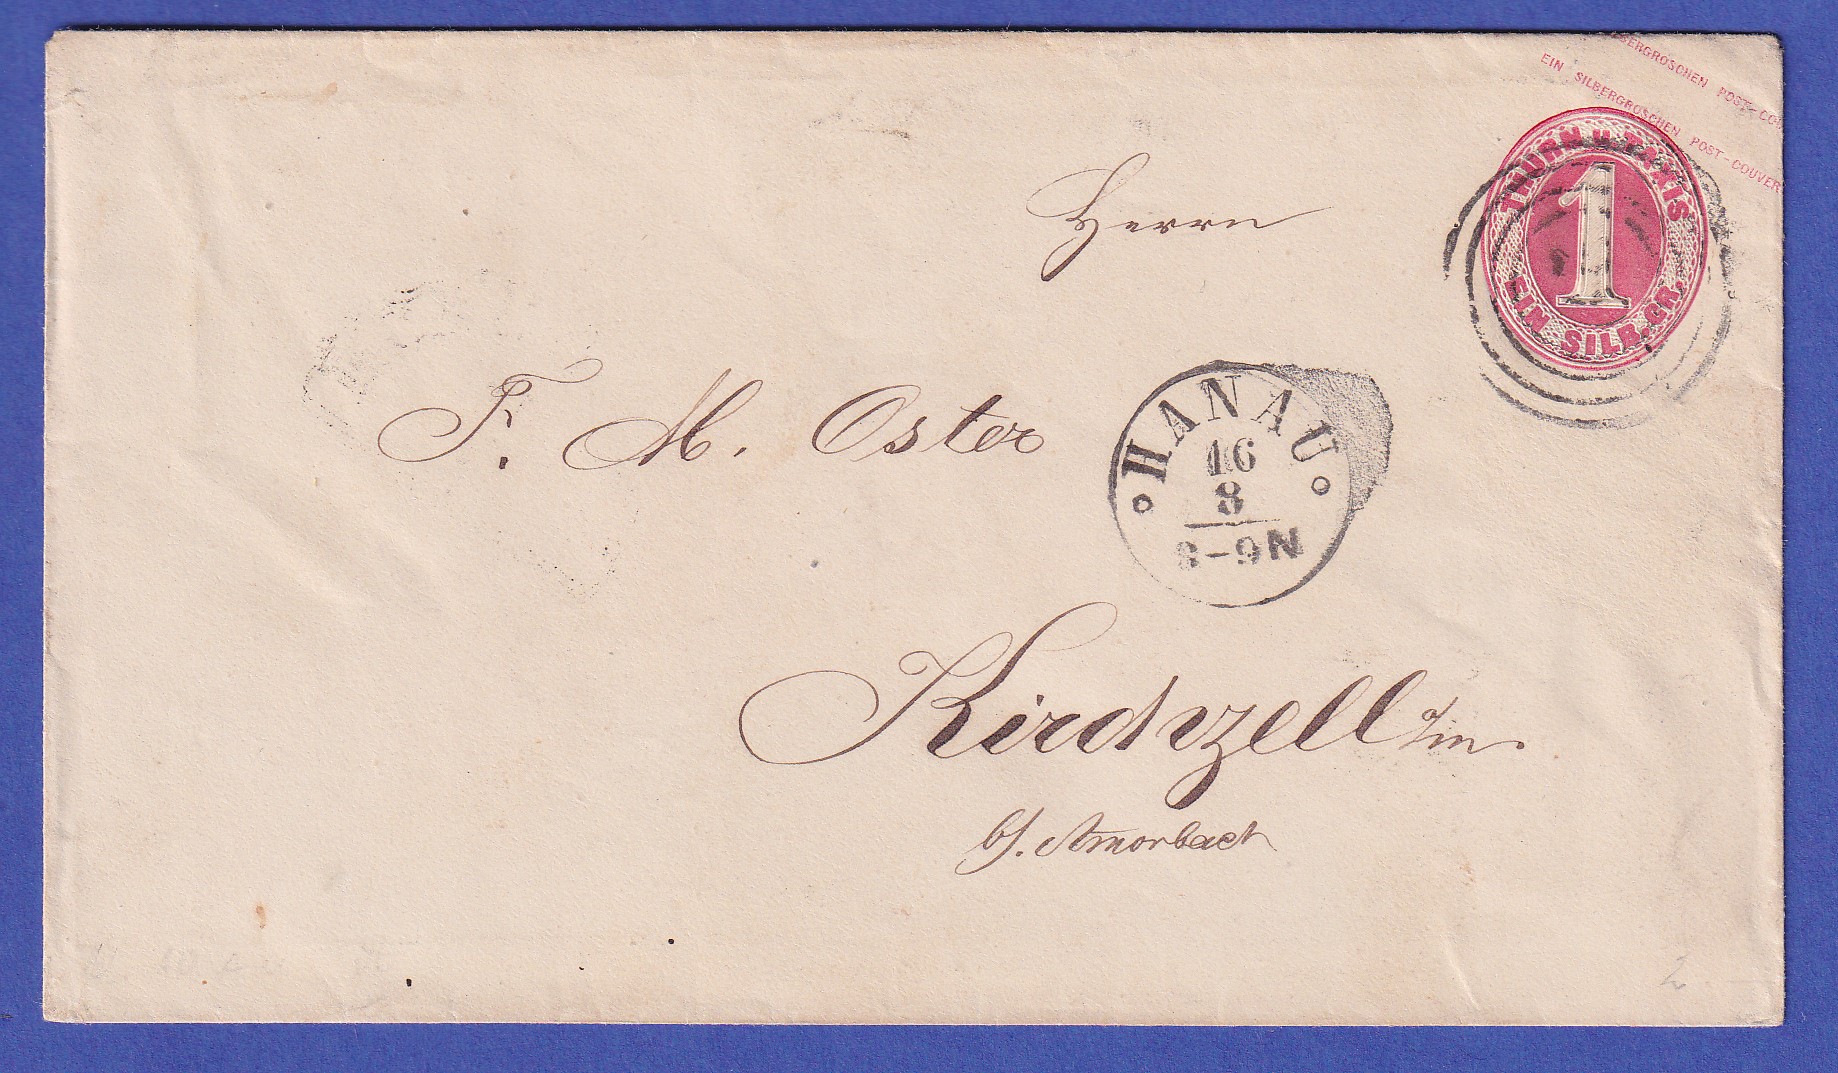 SILBERGROSCHEN POST-COU
EIN SILBERGROSCHEN POST-COUVERT
THURN U. TAXIS
1
EIN SILB. GR.
Herrn
F. M. Oster
HANAU
16
8
8-9N
Kirchzell a/m.
b/. Amorbach
2.-